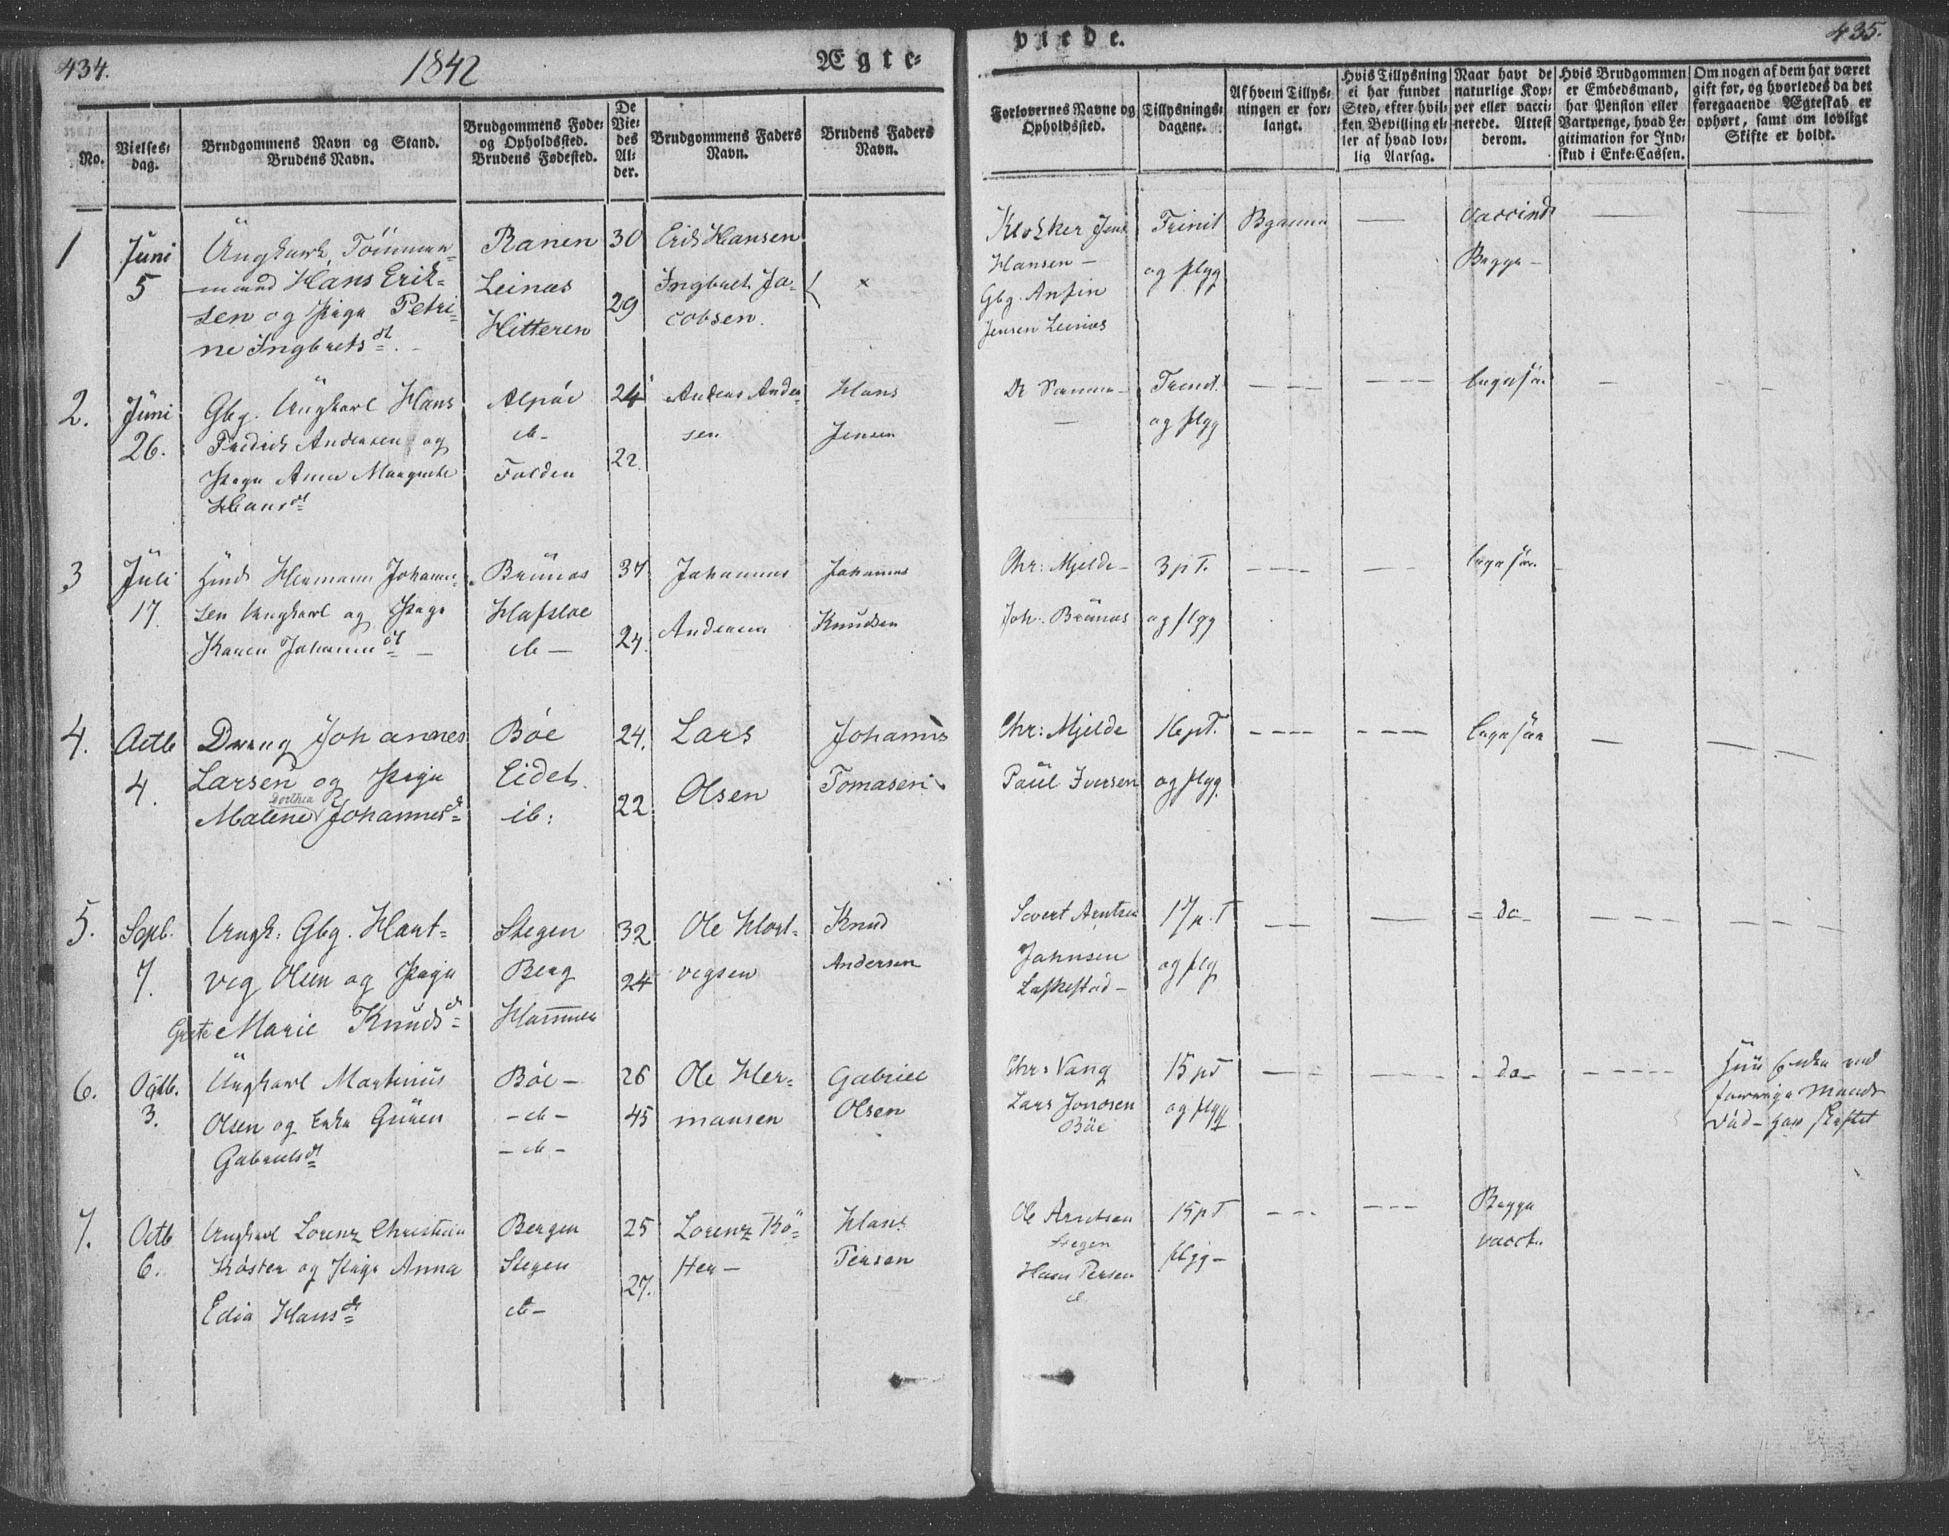 434.
1842
Ægte-
No.
Vielses-
dag.
Brudgommens Navn og Stand.
Brudens Navn.
Brudgommens Føde-
og Opholdssted.
Brudens Fødested.
De
Vie-
des
Al-
der.
Brudgommens Faders
Navn.
Brudens Faders
Navn.
1
Juni
5
Ungkarl, Tømmer-
mand Hans Erik-
sen og Pige Petri-
ne Ingbretsdt.
Ranen
Leinæs
Hitteren
30
29
Erik Hansen
Ingbret Ja-
cobsen.
×
2.
Juni
26.
Gbg. Ungkarl Hans
Fredrik Andersen og
Pige Anna Margrete
Hansdt
ib-
Folden
24
22
Andreas Ander-
sen
Hans
Jensen
3
Juli
17.
Herman Johanne-
sen Ungkarl og Pige
Karen Johannesdt
Brunæs
Hafsloe
ib-
37
24.
Johannes
Andersen
Johannes
Knudsen
4.
Octb
4.
Dreng Johannes
Larsen og Pige
Dorthea
Malene Johannesdt
Bøe
Eidet.
ib:
24.
22.
Lars
Olsen
Johannes
Tomasen
5.
Sepb.
7.
Ungk: Gbg. Hart-
vig Olsen og Pige
Grete Marie Knudsdt
Stegen
Berg
Hammer
32
24
Ole Hart-
vigsen
Knud
Andersen
6.
Octb.
3.
Ungkarl Martinus
Olsen og Enke
Gabrielsdt
Bøe-
-ib-
-ib-
26
45
Ole Her-
mansen
Gabriel
Olsen
7.
Octb
6.
Ungkarl Lorenz Christian
Køster og Pige Anna
Edia Hansdt
Bergen
Stegen
ib-
25
27.
Lorenz Kø-
ster-
Hans
Persen
435.
viede.
Forlovernes Navne og
Opholdssted.
Tillysnings-
dagene.
Af hvem Tillys-
ningen er for-
langt.
Hvis Tillysning
ei har fundet
Sted, efter hvil-
ken Bevilling el-
ler af hvad lov-
lig Aarsag.
Naar havt de
naturlige Kop-
per eller vacci-
nerede. Attest
derom.
Hvis Brudgommen
er Embedsmand,
har Pension eller
Vartpenge, hvad Le-
gitimation for Ind-
skud i Enke-Cassen.
Om nogen af dem har været
gift før, og hvorledes da det
foregaaende Ægteskab er
ophørt, samt om lovligt
Skifte er holdt.
Klokker Jens
Hansen-
Gbg. Anfin
Jensen Leinæs
Trinit
og flgg
Begge-
De Samme-
Trinit.
og flgg
Ligesaa
Chr: Mjelde-
Joh. Brunæs
3 p T.
og flgg
Ligesaa
Chr: Mjelde
Paul Iversen
16 p T.
og flgg.
Ligesaa
Sivert Arntsen
Johnsen
Laskestad-
17 p. T
og flg
-do-
Chr: Vang
Lars Jonasen
Bøe
15 p T
og flgg
-do-
Hun Enke ved
forrige Mands
Død- har skiftet
Ole Arntsen
Stegen
Hans Persen
15 p T
flgg-
Begge
vacct.